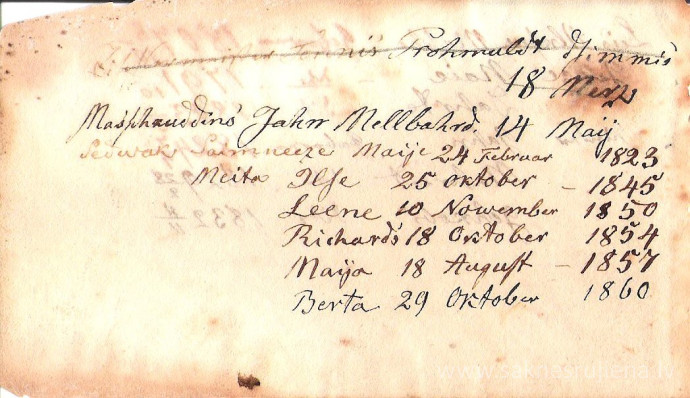 Tennis Frohmuldt dsimmis
18 Merz
Masphauddins Jahn Mellbahrd. 14 Maij
Sedwak Saimneeze Maije 24 Februar 1823
Meita Ilse 25 Oktober – 1845
Leene 10 Nowember 1850
Richards 18 Oktober 1854
Maija 18 August – 1857
Berta 29 Oktober 1860
www.saknesrujiena.lv